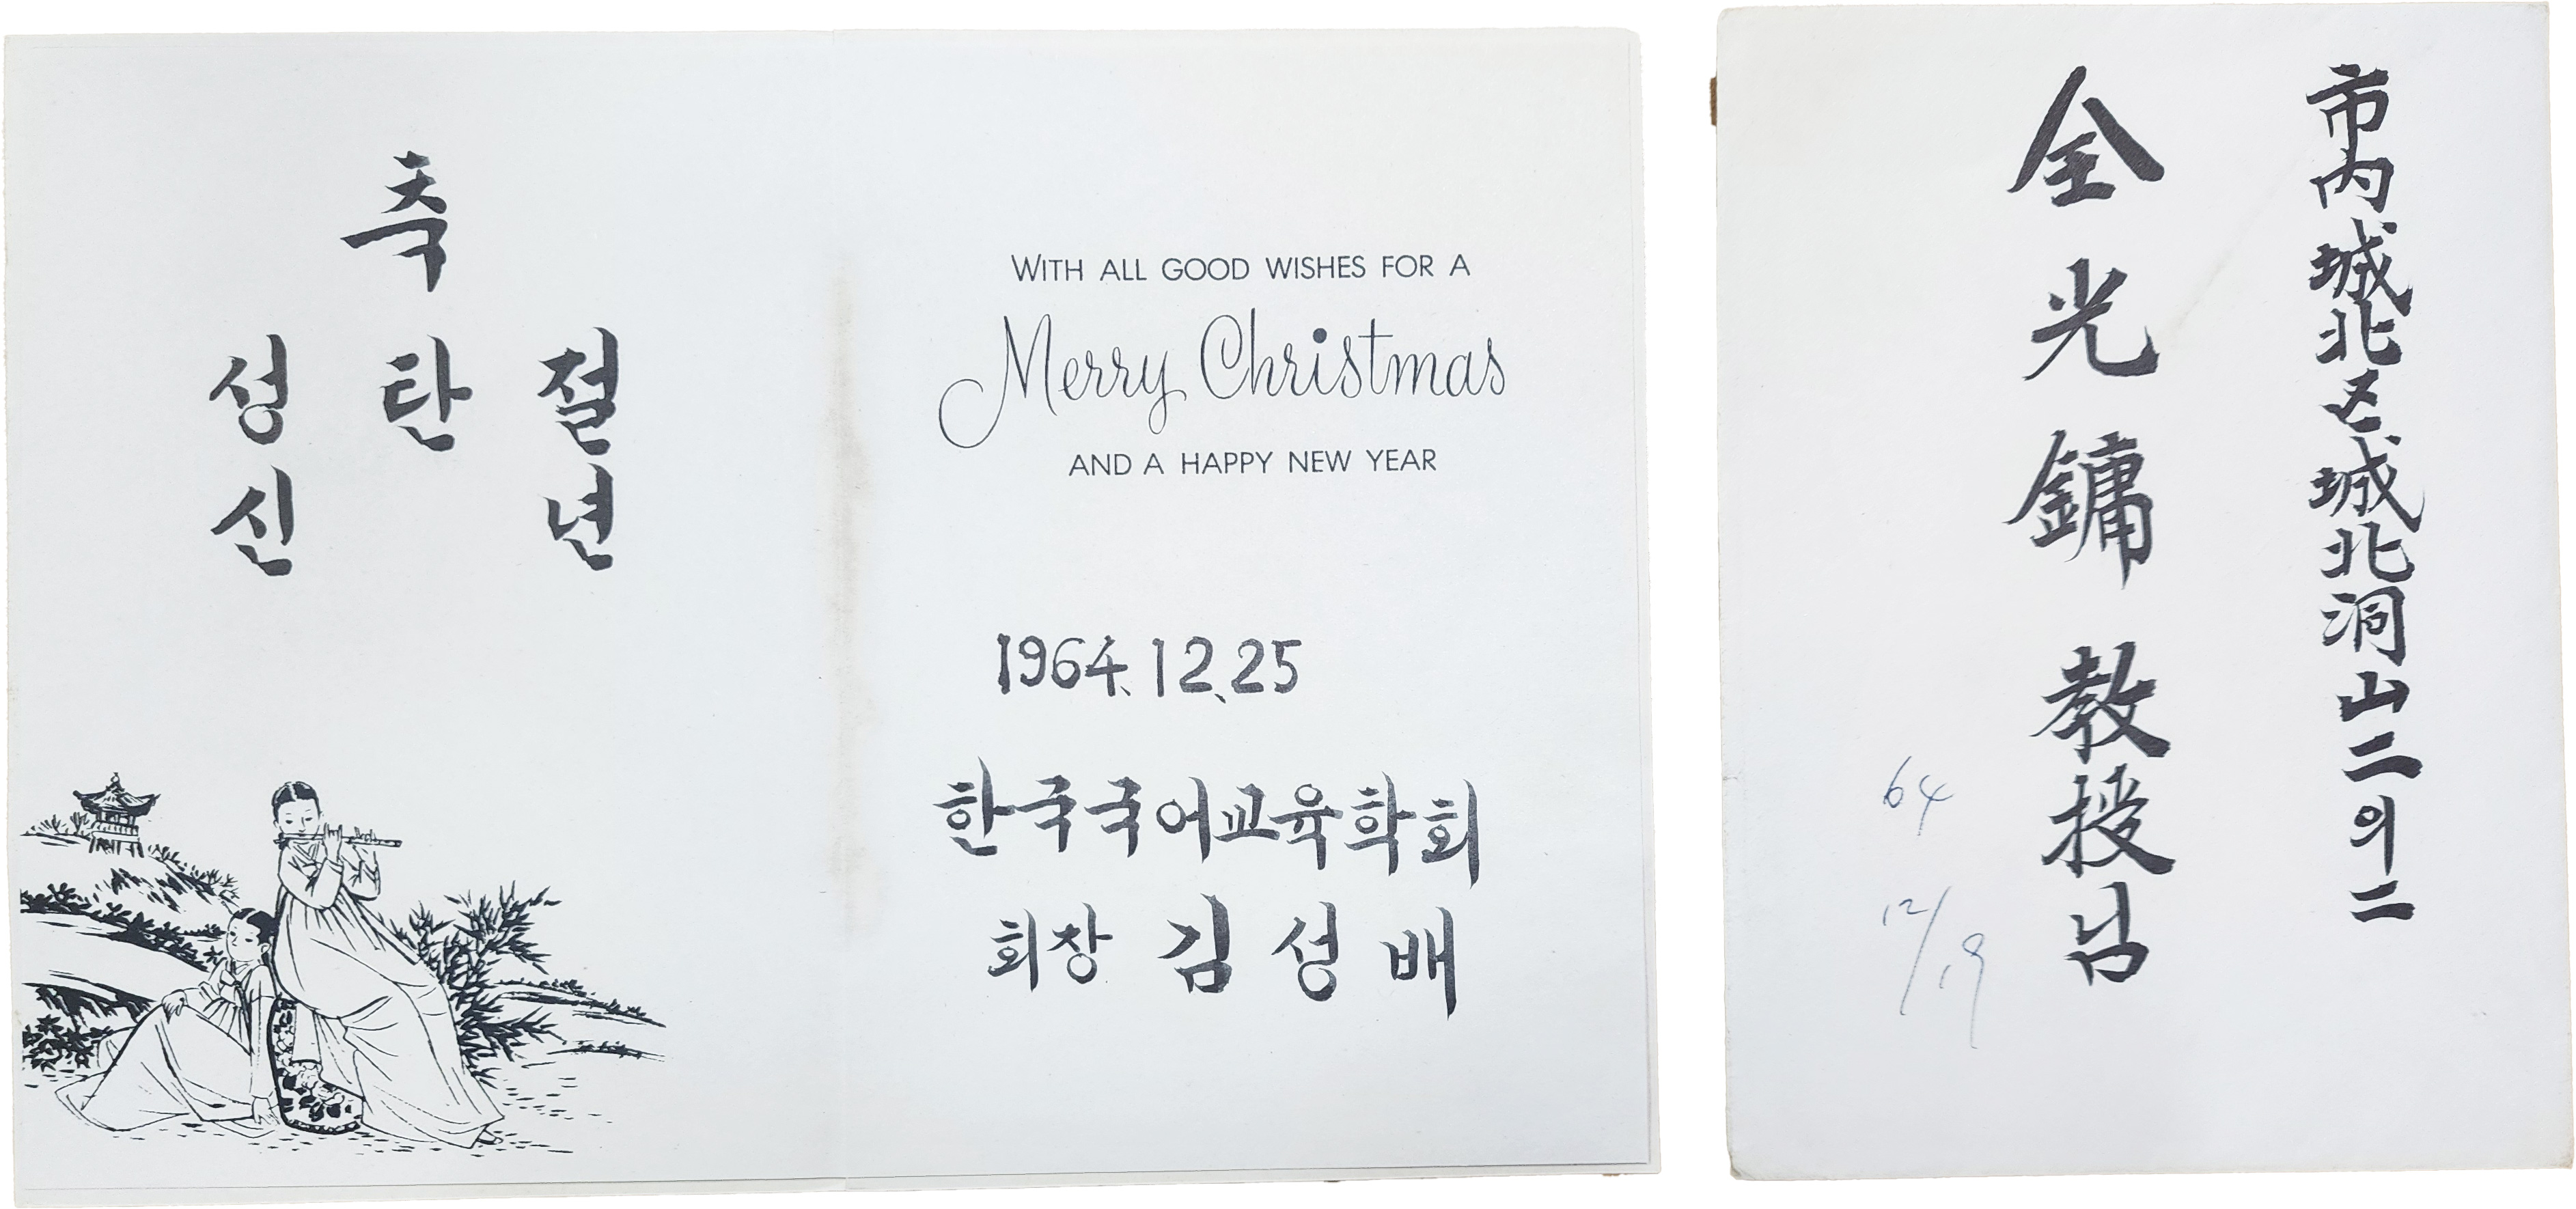 축
성 탄 절
신 년
WITH ALL GOOD WISHES FOR A
Merry Christmas
AND A HAPPY NEW YEAR
1964.12.25
한국국어교육학회
회장 김성배
市内城北区城北洞山二의二
全光鏞 教授님
64
12/19